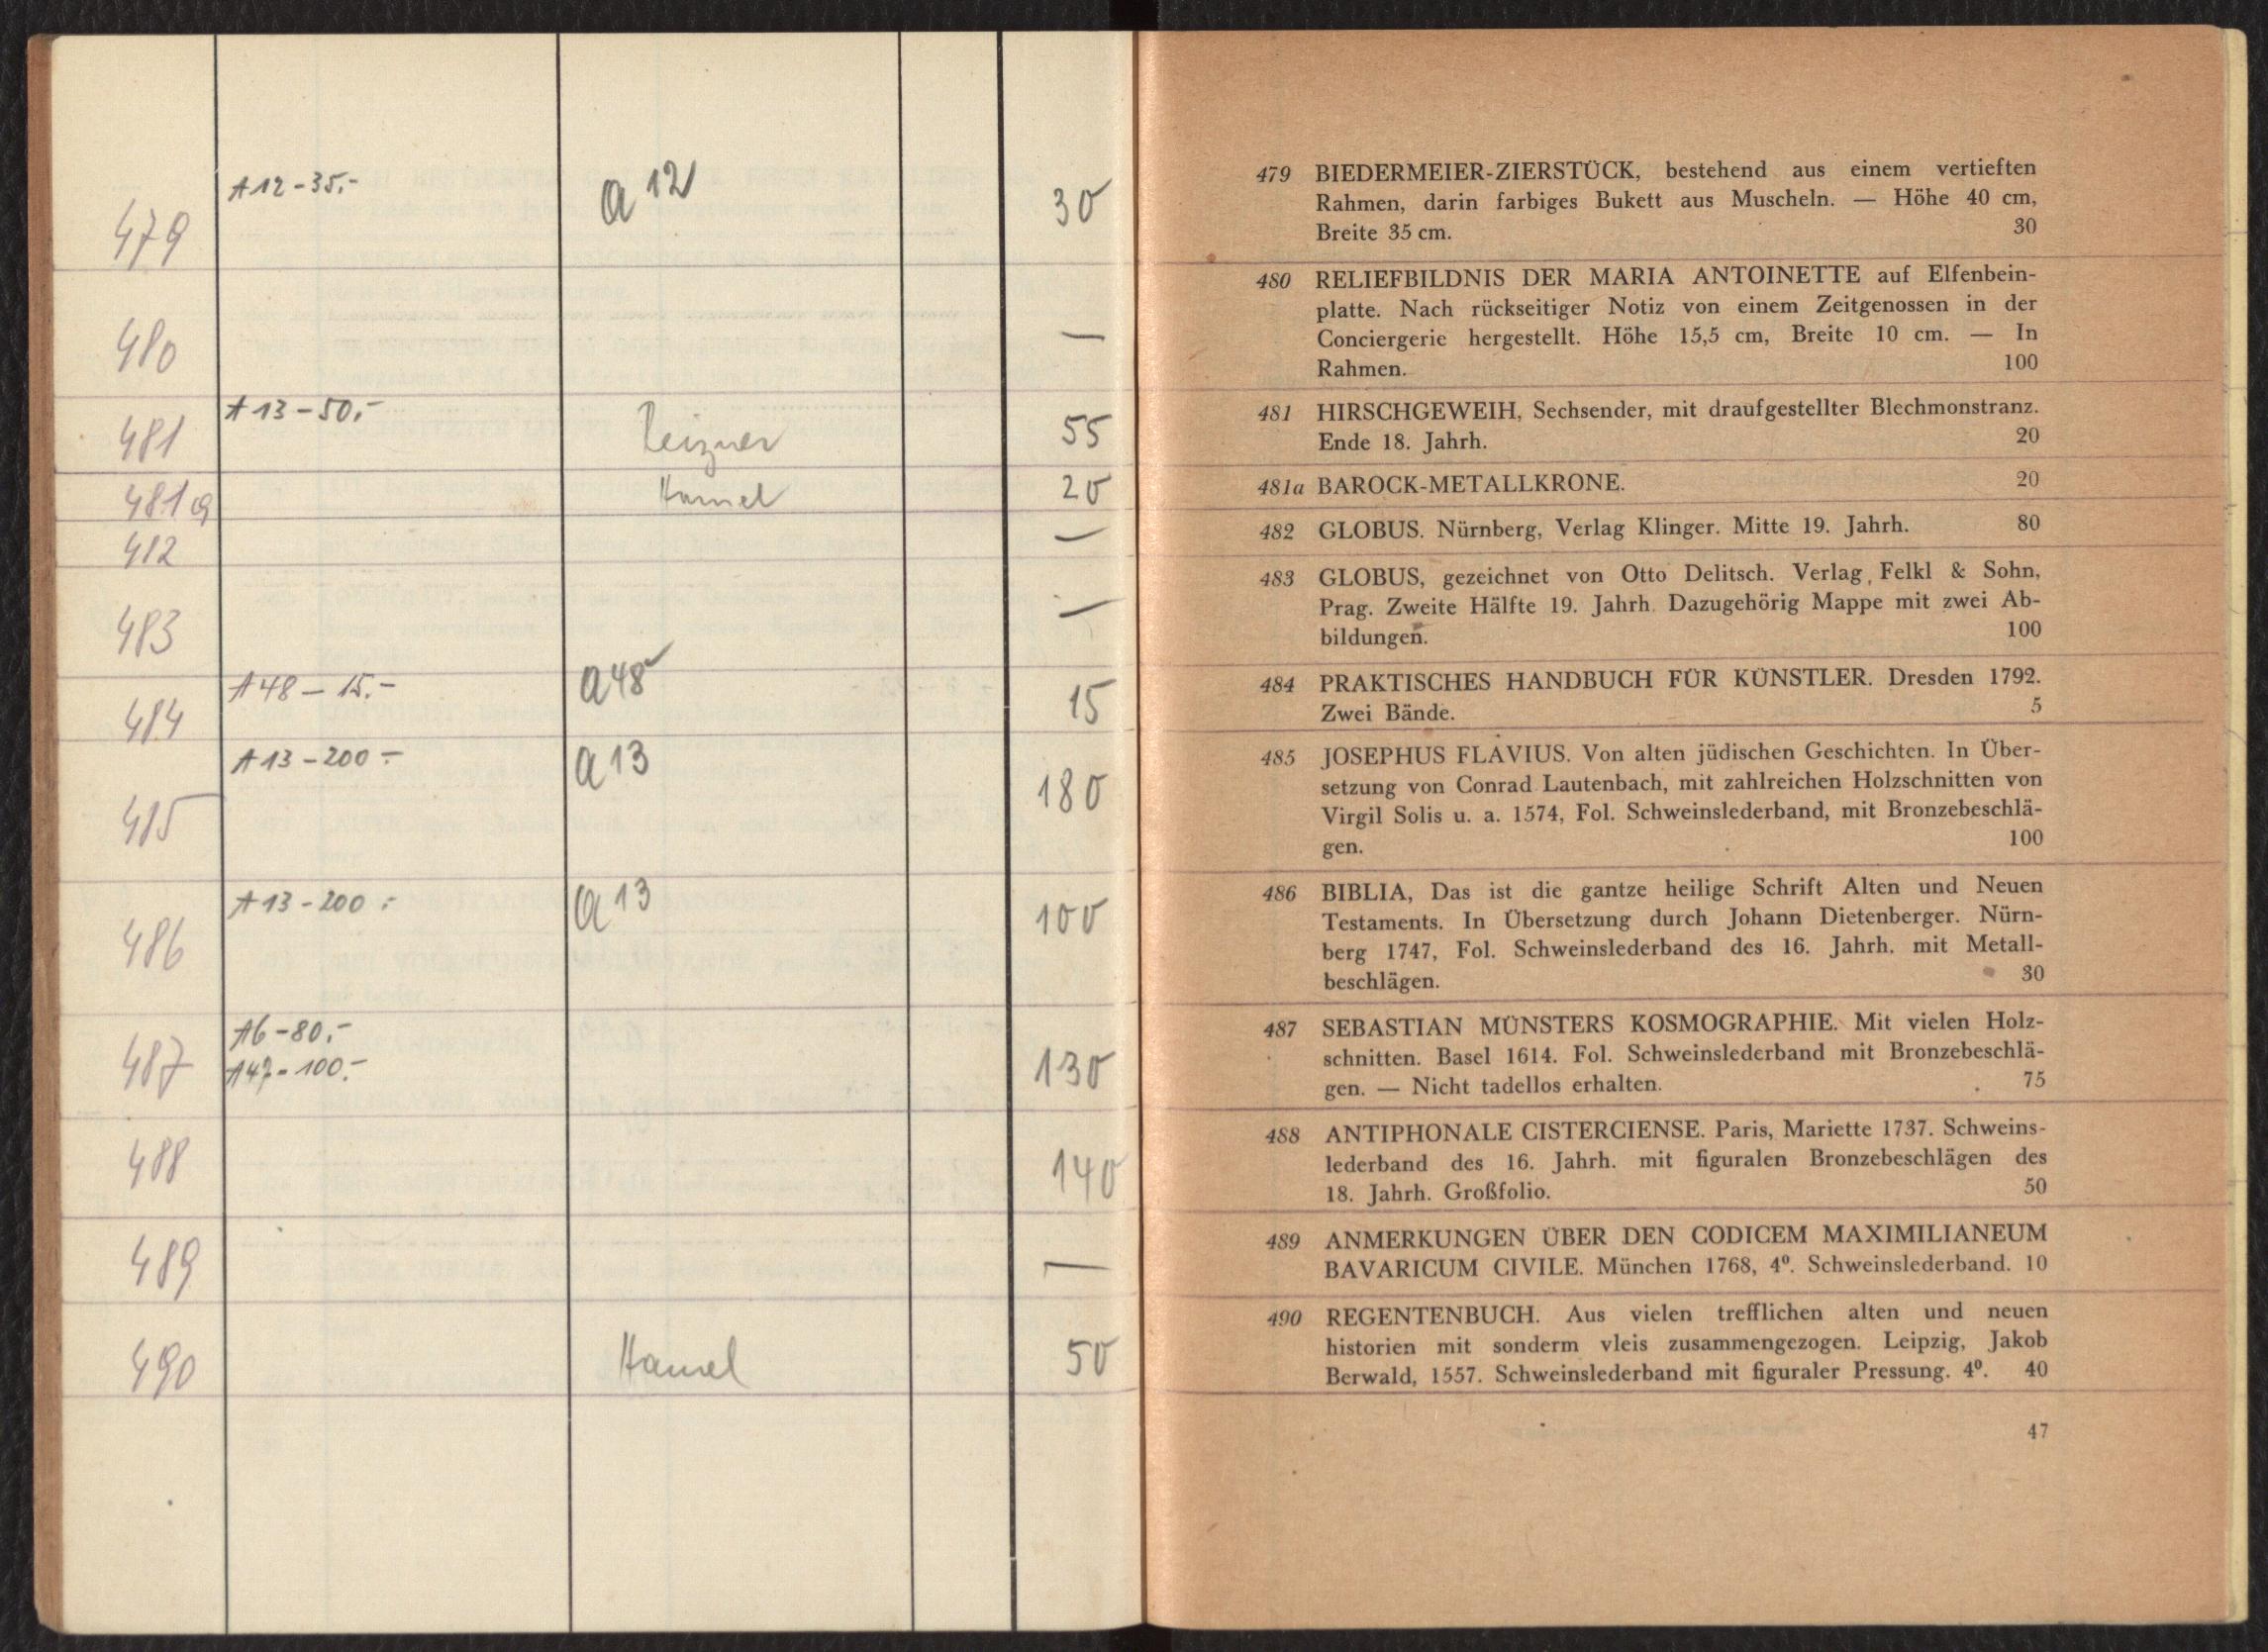 479 A12-35.- a 12 30
480 —
481 A13-50.- 55
481a Hamel 20
482 —
483 —
484 A48-15.- a48 15
485 A13-200.- a 13 180
486 A13-200.- a 13 100
487 A6-80.-
A47-100.- 130
488 140
489 —
490 Hamel 50
479 BIEDERMEIER-ZIERSTÜCK, bestehend aus einem vertieften
Rahmen, darin farbiges Bukett aus Muscheln. — Höhe 40 cm,
Breite 35 cm. 30
480 RELIEFBILDNIS DER MARIA ANTOINETTE auf Elfenbein-
platte. Nach rückseitiger Notiz von einem Zeitgenossen in der
Conciergerie hergestellt. Höhe 15,5 cm, Breite 10 cm. — In
Rahmen. 100
481 HIRSCHGEWEIH, Sechsender, mit draufgestellter Blechmonstranz.
Ende 18. Jahrh. 20
481a BAROCK-METALLKRONE. 20
482 GLOBUS. Nürnberg, Verlag Klinger. Mitte 19. Jahrh. 80
483 GLOBUS, gezeichnet von Otto Delitsch. Verlag Felkl & Sohn,
Prag. Zweite Hälfte 19. Jahrh. Dazugehörig Mappe mit zwei Ab-
bildungen. 100
484 PRAKTISCHES HANDBUCH FÜR KÜNSTLER. Dresden 1792.
Zwei Bände. 5
485 JOSEPHUS FLAVIUS. Von alten jüdischen Geschichten. In Über-
setzung von Conrad Lautenbach, mit zahlreichen Holzschnitten von
Virgil Solis u. a. 1574, Fol. Schweinslederband, mit Bronzebeschlä-
gen. 100
486 BIBLIA, Das ist die gantze heilige Schrift Alten und Neuen
Testaments. In Übersetzung durch Johann Dietenberger. Nürn-
berg 1747, Fol. Schweinslederband des 16. Jahrh. mit Metall-
beschlägen. 30
487 SEBASTIAN MÜNSTERS KOSMOGRAPHIE. Mit vielen Holz-
schnitten. Basel 1614. Fol. Schweinslederband mit Bronzebeschlä-
gen. — Nicht tadellos erhalten. 75
488 ANTIPHONALE CISTERCIENSE. Paris, Mariette 1737. Schweins-
lederband des 16. Jahrh. mit figuralen Bronzebeschlägen des
18. Jahrh. Großfolio. 50
489 ANMERKUNGEN ÜBER DEN CODICEM MAXIMILIANEUM
BAVARICUM CIVILE. München 1768, 4º. Schweinslederband. 10
490 REGENTENBUCH. Aus vielen trefflichen alten und neuen
historien mit sonderm vleis zusammengezogen. Leipzig, Jakob
Berwald, 1557. Schweinslederband mit figuraler Pressung. 4º. 40
47